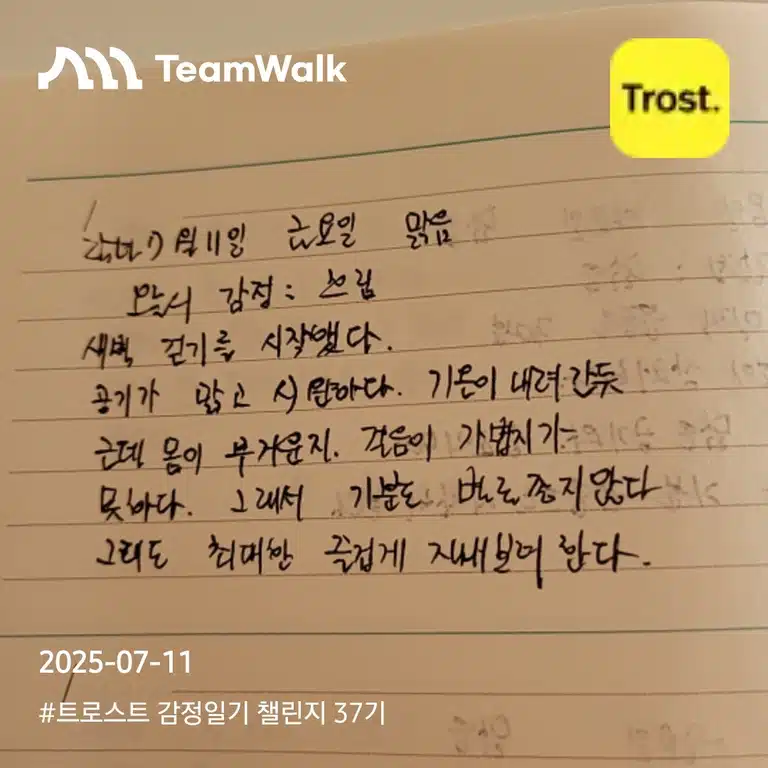 TeamWalk
Trost.
7월 11일 금요일 맑음
감정: 흐림
새벽 걷기를 시작했다.
공기가 맑고 시원하다. 기온이 내려간듯
근데 몸이 무거운지. 걸음이 가볍지가
못하다. 그래서 기분도 별로좋지않다
그래도 최대한 즐겁게 지내보려 한다.
2025-07-11
#트로스트 감정일기 챌린지 37기